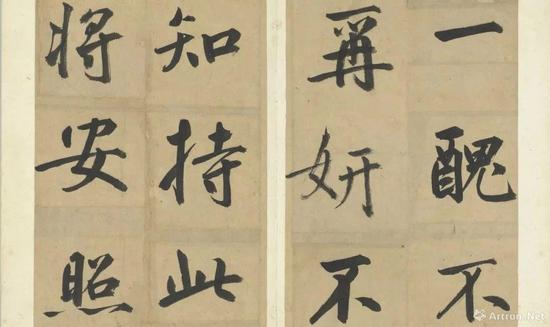 一醜不
再妍不
知持此
將安照
Artron.Net